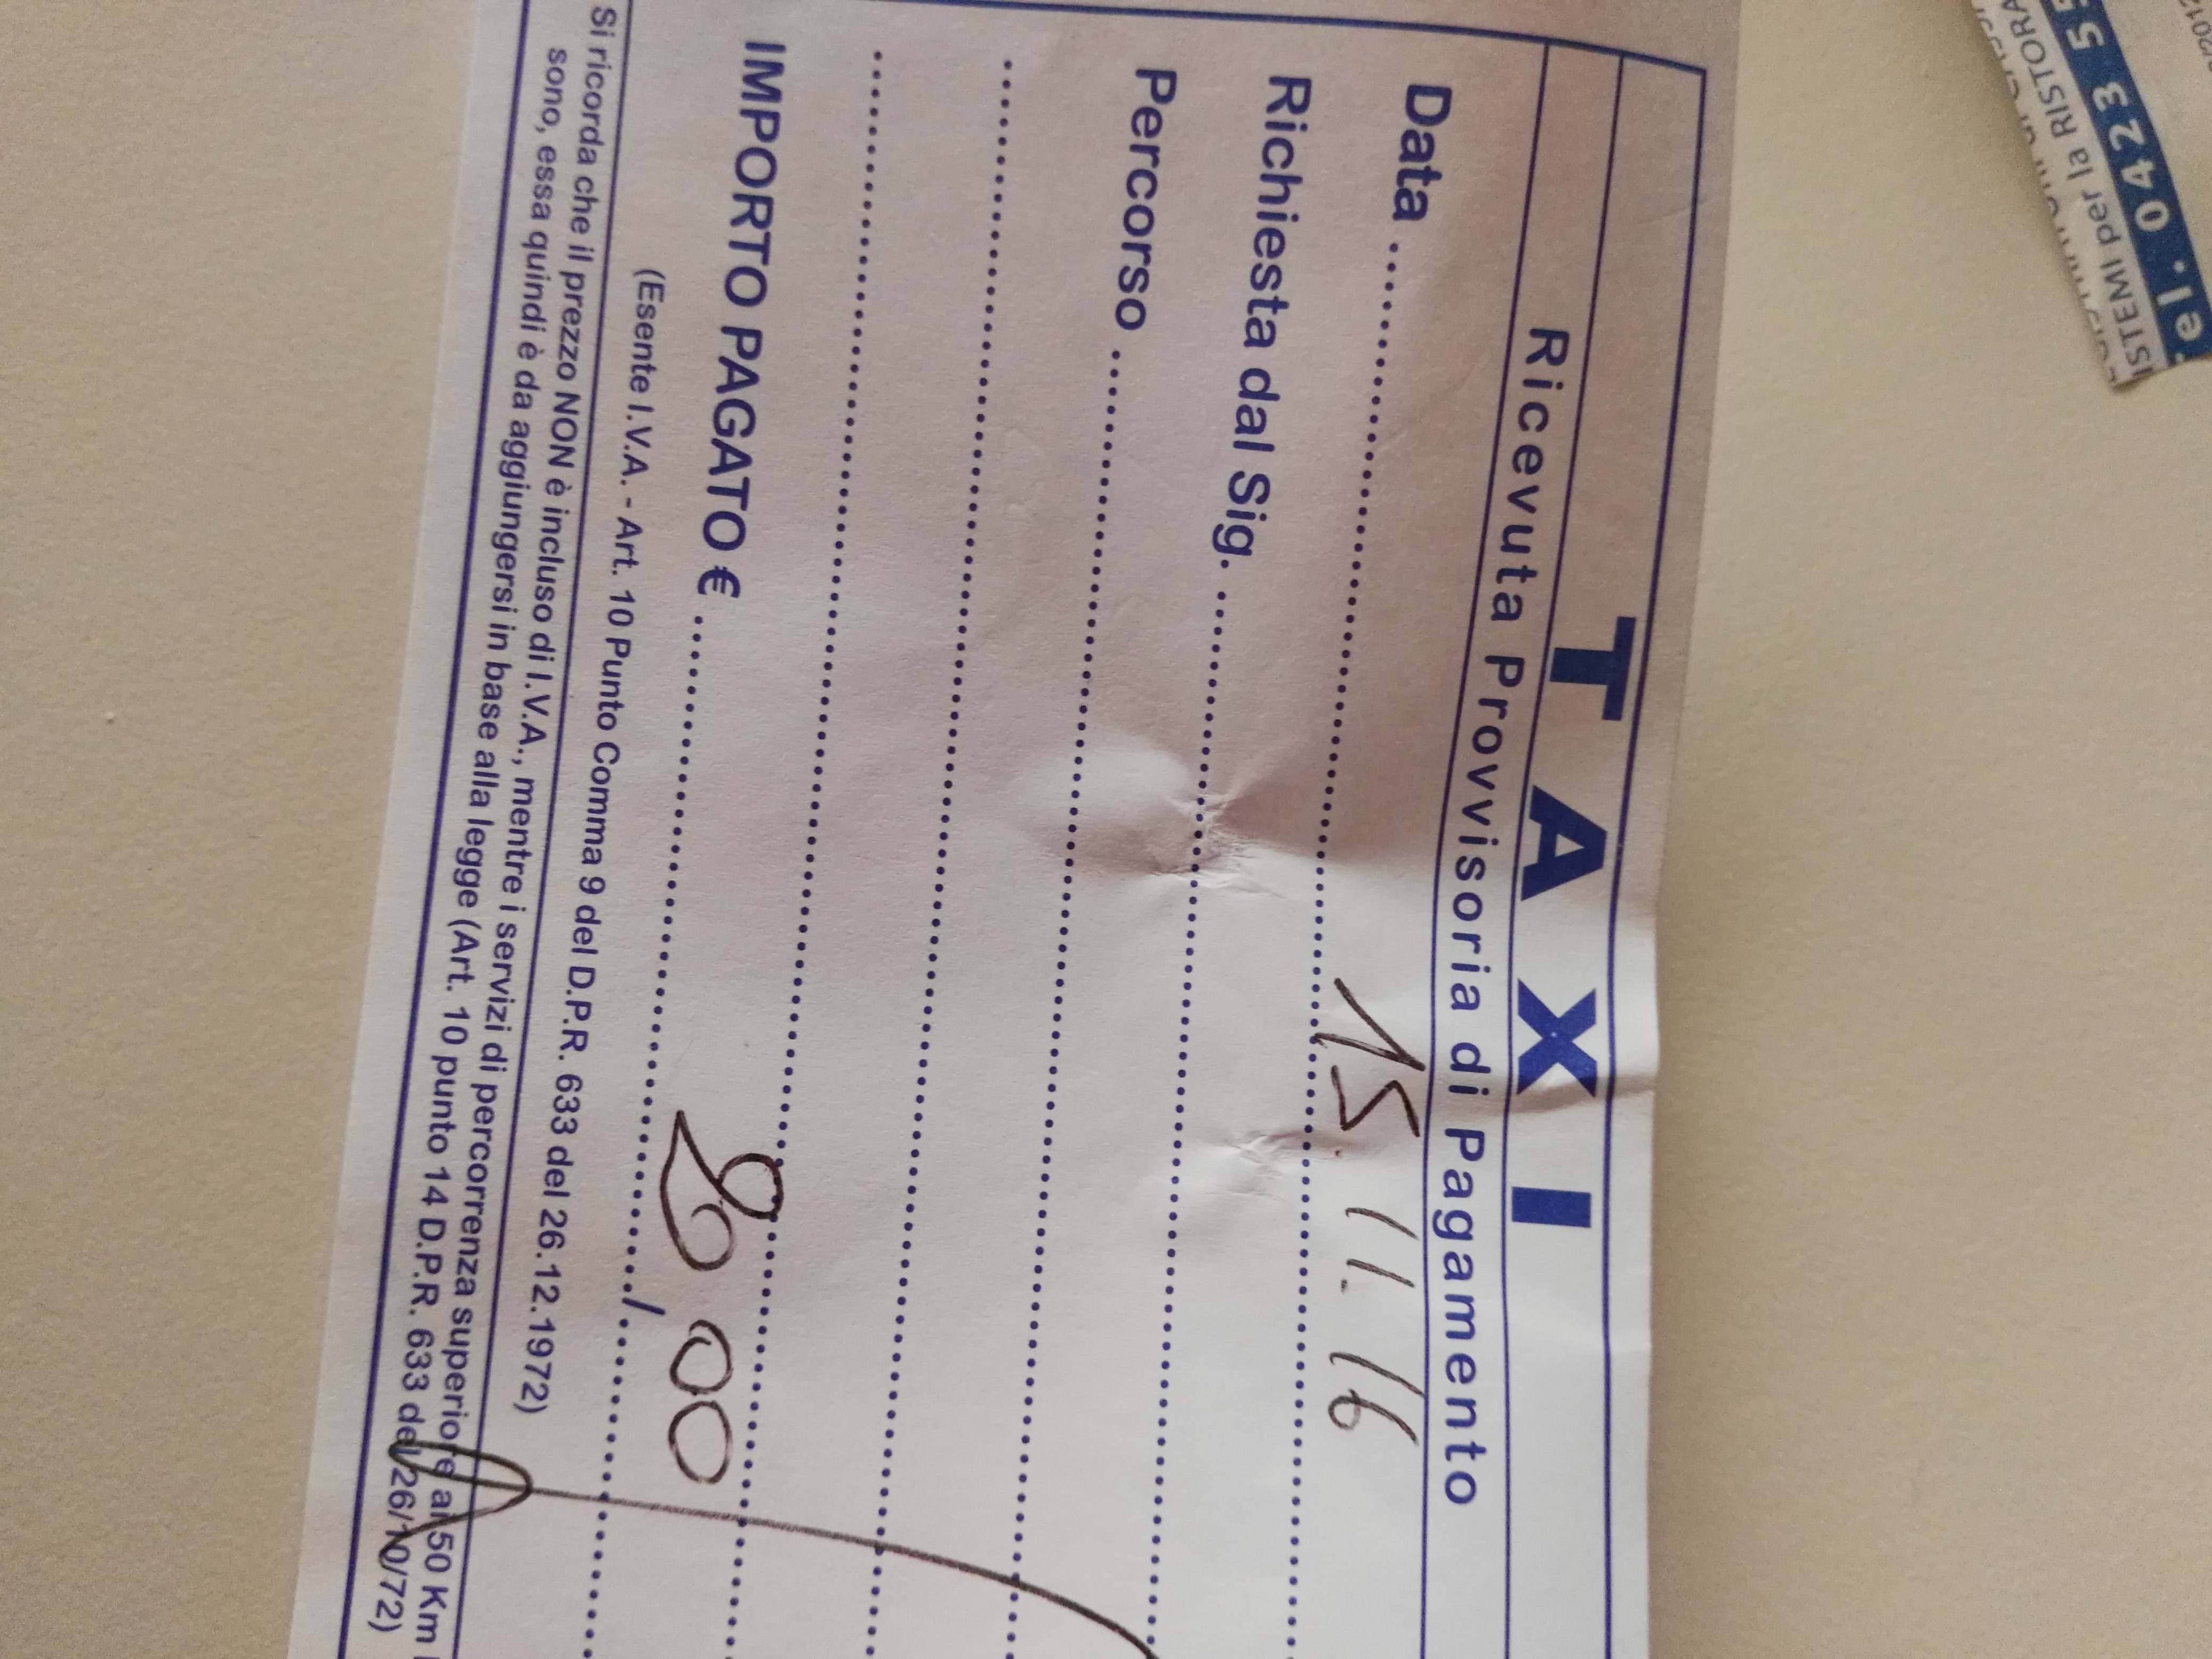 TAXI
Ricevuta Provvisoria di Pagamento
Data .......... 15.11.16
Richiesta dal Sig. ..........
Percorso ..........
IMPORTO PAGATO € .......... / 00
(Esente I.V.A. - Art. 10 Punto Comma 9 del D.P.R. 633 del 26.12.1972)
Si ricorda che il prezzo NON è incluso di I.V.A., mentre i servizi di percorrenza superiore ai 50 Km
sono, essa quindi è da aggiungersi in base alla legge (Art. 10 punto 14 D.P.R. 633 del 26/10/72)
el. 0423 55
ISTEMI per la RISTORA